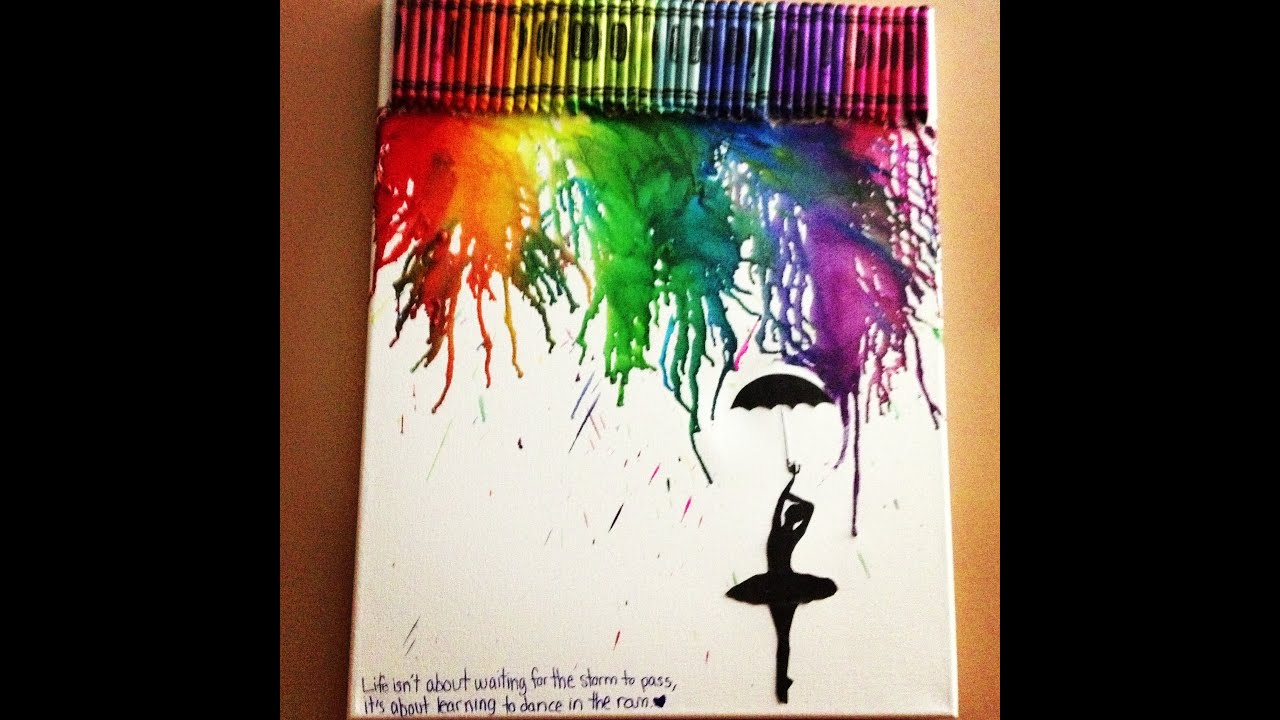 Life isn't about waiting for the storm to pass,
it's about learning to dance in the rain.♥